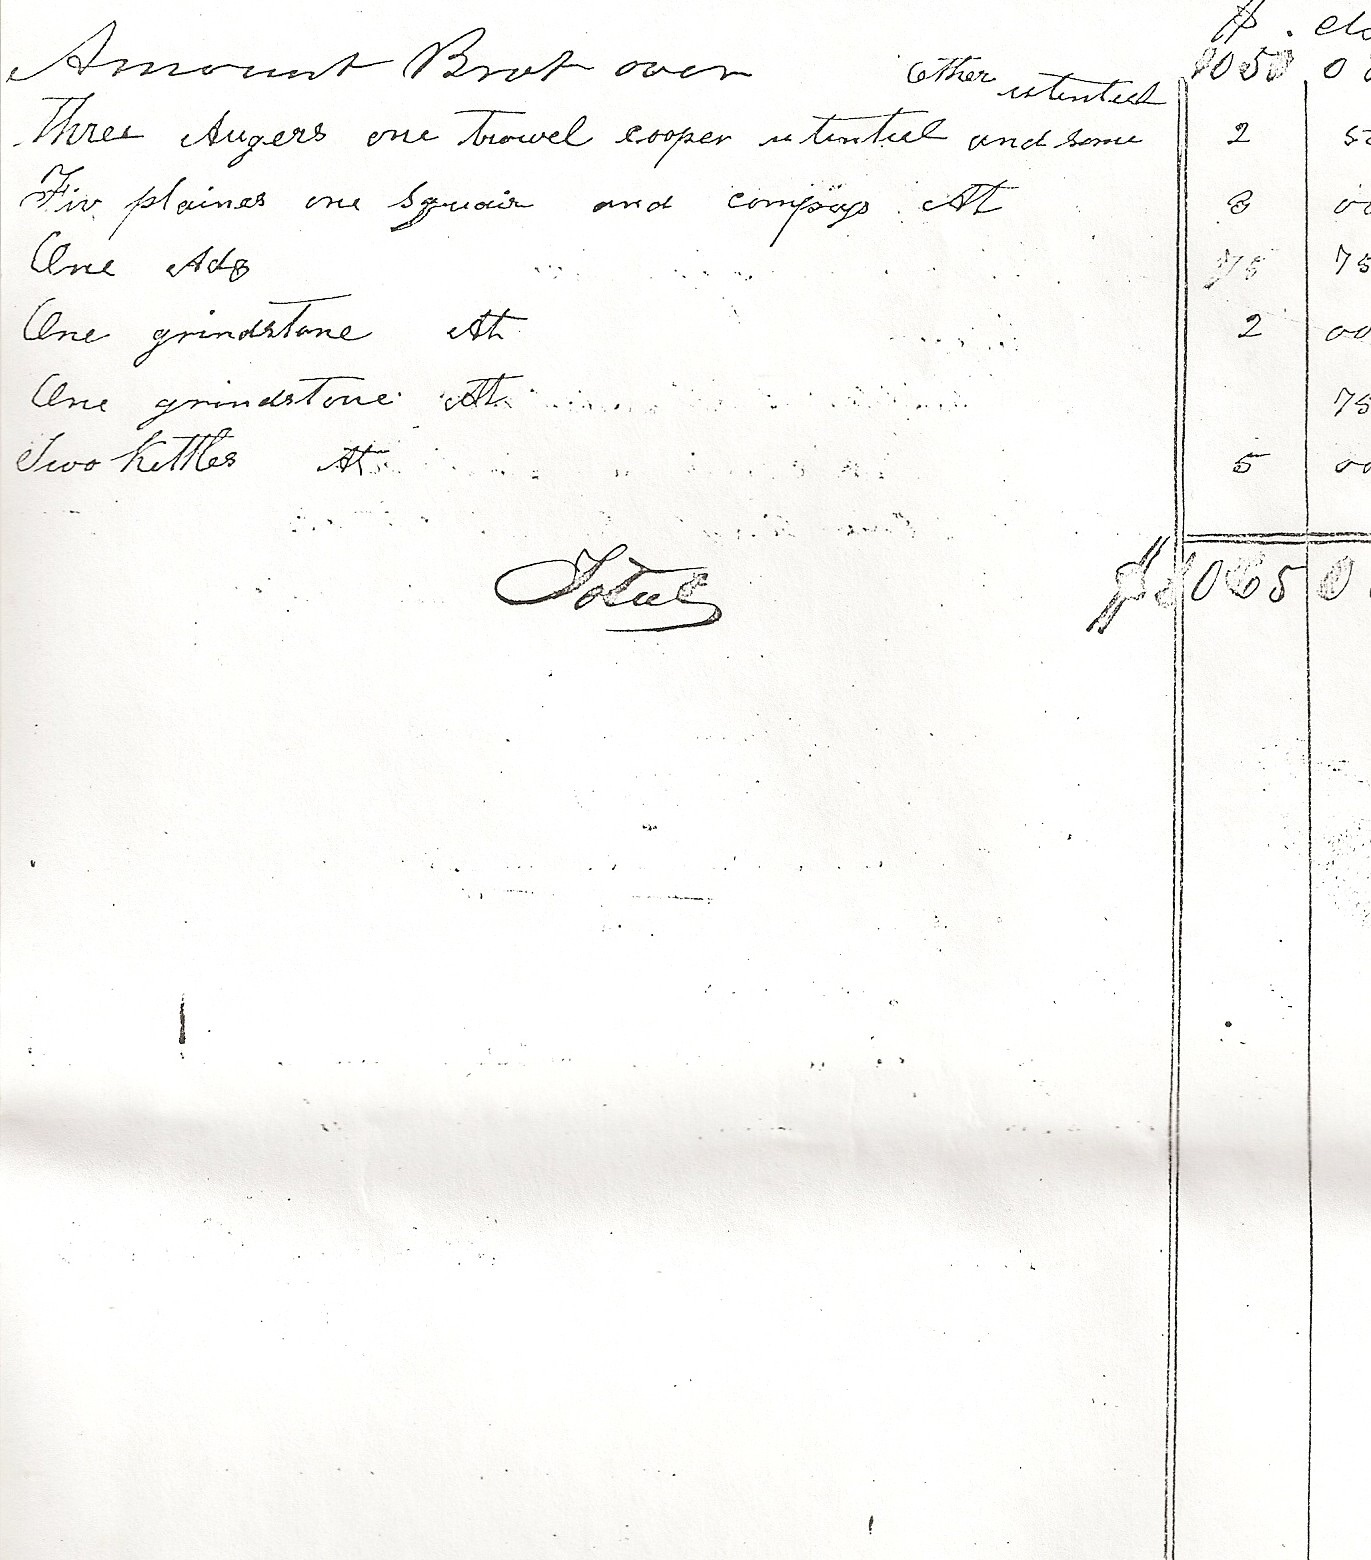 $ . cts
Amount Brot over 1050 0
other utentiel
Three Augers one trowel cooper utentiel and some 2 5
Fiv plaines one Squair and compass At 3 00
One Adz 75 75
One grindstone At 2 00
One grindstone At 75
Two Kettles At 5 00
Total $ 1065 0